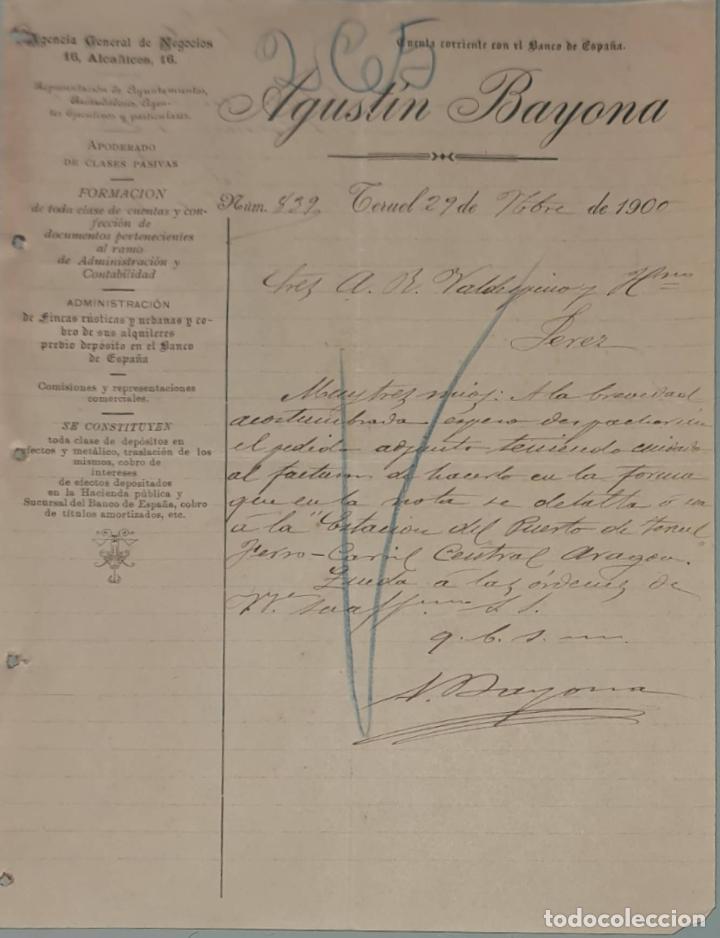 Agencia General de Negocios
16, Alcañices, 16.
Representación de Ayuntamientos,
Recaudadores, Agen-
tes Ejecutivos y particulares.
APODERADO
DE CLASES PASIVAS
FORMACION
de toda clase de cuentas y con-
fección de
documentos pertenecientes
al ramo
de Administración y
Contabilidad
ADMINISTRACIÓN
de Fincas rústicas y urbanas y co-
bro de sus alquileres
previo depósito en el Banco
de España
Comisiones y representaciones
comerciales.
SE CONSTITUYEN
toda clase de depósitos en
efectos y metálico, traslación de los
mismos, cobro de
intereses
de efectos depositados
en la Hacienda pública y
Sucursal del Banco de España, cobro
de títulos amortizados, etc.
265
Cuenta corriente con el Banco de España.
Agustín Bayona
Núm. 839 Teruel 29 de de 1900
Sres A. R. Valdespino y Hmno
Jerez
Muy Sres mios: A la brevedad
acostumbrada espero despacharán
el pedido adjunto teniendo cuidado
al facturar de hacerlo en la forma
que en la nota se detalla ó sea
a la "Estacion del Puerto de Teruel
Ferro-Carril Central Aragon.
Queda a las órdenes de
s. s.
q. b. s. m.
A. Bayona
todocoleccion